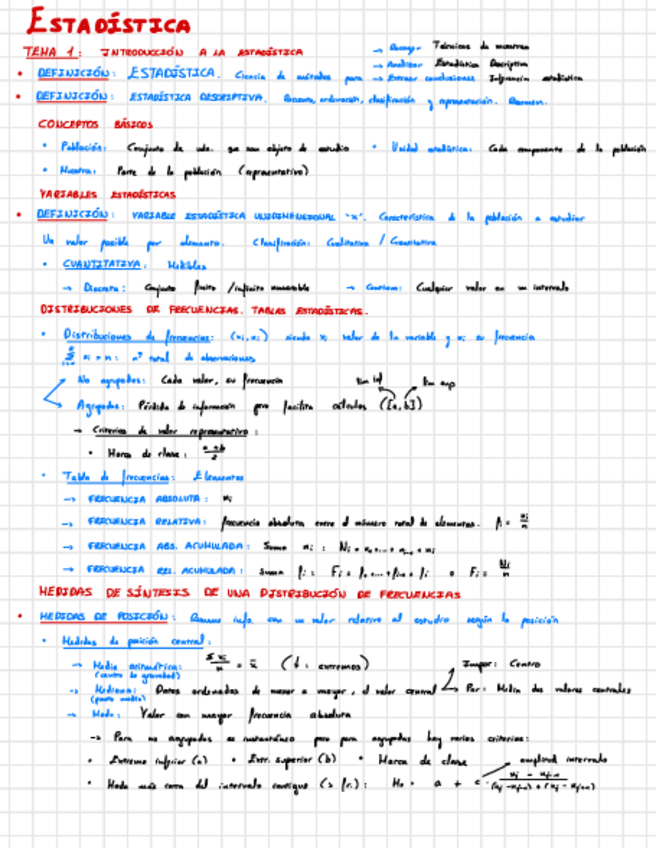 ESTADÍSTICA
TEMA 1: INTRODUCCIÓN A LA ESTADÍSTICA → Recoger Técnicas de muestreo
→ Analizar Estadística Descriptiva
• DEFINICIÓN: ESTADÍSTICA. Ciencia de métodos para → Extraer conclusiones Inferencia estadística
• DEFINICIÓN: ESTADÍSTICA DESCRIPTIVA. Recuento, ordenación, clasificación y representación. Resumen.
CONCEPTOS BÁSICOS
• Población: Conjunto de uds. que son objeto de estudio • Unidad estadística: Cada componente de la población
• Muestra: Parte de la población (representativo)
VARIABLES ESTADÍSTICAS
• DEFINICIÓN: VARIABLE ESTADÍSTICA UNIDIMENSIONAL "x". Característica de la población a estudiar
Un valor posible por elemento. Clasificación: Cualitativa / Cuantitativa
• CUANTITATIVA: Medibles
→ Discreta: Conjunto finito / infinito numerable → Continua: Cualquier valor en un intervalo
DISTRIBUCIONES DE FRECUENCIAS. TABLAS ESTADÍSTICAS.
• Distribuciones de frecuencias: (xi, ni) siendo xi valor de la variable y ni su frecuencia
ni = n: nº total de observaciones
No agrupados: Cada valor, su frecuencia lim inf lim sup
Agrupados: Pérdida de información pero facilita cálculos ([a,b])
→ Criterios de valor representativo:
• Marca de clase: a+b/2
• Tabla de frecuencias: Elementos
→ FRECUENCIA ABSOLUTA: ni
→ FRECUENCIA RELATIVA: frecuencia absoluta entre el número total de elementos. fi = ni/n
→ FRECUENCIA ABS. ACUMULADA: Suma ni: Ni = n1+...+ni-1+ni
→ FRECUENCIA REL. ACUMULADA: suma fi: Fi = f1+...+fi-1+fi o Fi = Ni/n
MEDIDAS DE SÍNTESIS DE UNA DISTRIBUCIÓN DE FRECUENCIAS
• MEDIDAS DE POSICIÓN: Resume info. con un valor relativo al estudio según la posición
• Medidas de posición central:
→ Media aritmética: Σxi/n = x̄ (↓: extremos) Impar: Centro
(centro de gravedad)
→ Mediana: Datos ordenados de menor a mayor, el valor central → Par: Media dos valores centrales
(punto medio)
→ Moda: Valor con mayor frecuencia absoluta
→ Para no agrupados es instantáneo pero para agrupados hay varios criterios:
• Extremo inferior (a) • Extr. superior (b) • Marca de clase amplitud intervalo
• Moda más cerca del intervalo contiguo (> fr.): Mo = a + c · nj - nj-1/(nj - nj-1) + (nj - nj+1)